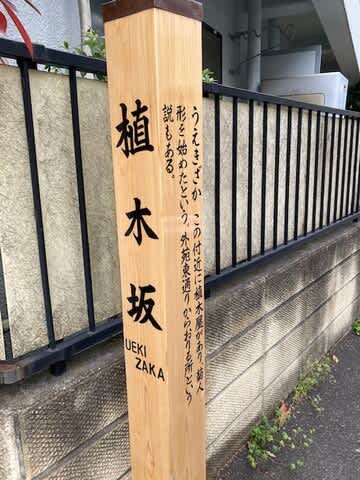 植木坂
UEKI
ZAKA
うえきざか この付近に植木屋があり、菊人
形を始めたという。外苑東通りからおりる所という
説もある。